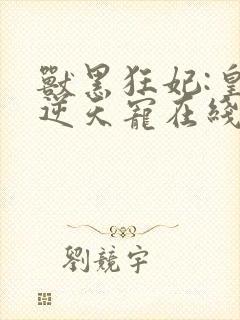 獸黑狂妃:皇
逆天寵在綫
劉競宇